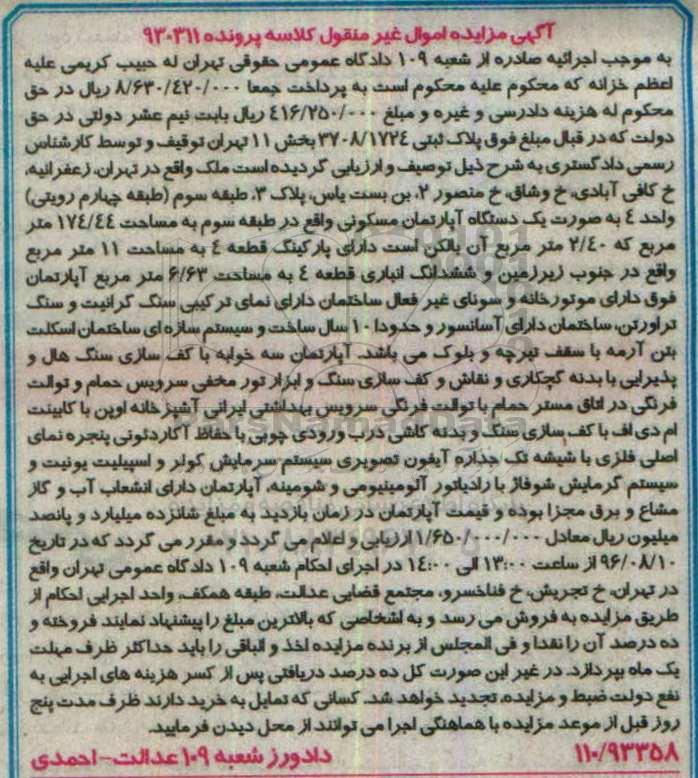 آگهی مزایده اموال غیر منقول کلاسه پرونده ۹۳۰۳۱۱
به موجب اجرائیه صادره از شعبه ۱۰۹ دادگاه عمومی حقوقی تهران له حبیب کریمی علیه
اعظم خزانه که محکوم علیه محکوم است به پرداخت جمعا ۸/۶۳۰/٤۲۰/۰۰۰ ریال در حق
محکوم له هزینه دادرسی و غیره و مبلغ ٤۱۶/۲۵۰/۰۰۰ ریال بابت نیم عشر دولتی در حق
دولت که در قبال مبلغ فوق پلاک ثبتی ۳۷۰۸/۱۷۲٤ بخش ۱۱ تهران توقیف و توسط کارشناس
رسمی دادگستری به شرح ذیل توصیف و ارزیابی گردیده است ملک واقع در تهران، زعفرانیه،
خ کافی آبادی، خ وشاق، خ منصور ۲، بن بست یاس، پلاک ۳، طبقه سوم (طبقه چهارم رویتی)
واحد ٤ به صورت یک دستگاه آپارتمان مسکونی واقع در طبقه سوم به مساحت ۱۷٤/٤٤ متر
مربع که ۲/٤۰ متر مربع آن بالکن است دارای پارکینگ قطعه ٤ به مساحت ۱۱ متر مربع
واقع در جنوب زیرزمین و ششدانگ انباری قطعه ٤ به مساحت ۶/۶۳ متر مربع آپارتمان
فوق دارای موتورخانه و سونای غیر فعال ساختمان دارای نمای ترکیبی سنگ گرانیت و سنگ
تراورتن، ساختمان دارای آسانسور و حدودا ۱۰ سال ساخت و سیستم سازه ای ساختمان اسکلت
بتن آرمه با سقف تیرچه و بلوک می باشد. آپارتمان سه خوابه با کف سازی سنگ هال و
پذیرایی با بدنه گچکاری و نقاش و کف سازی سنگ و ابزار نور مخفی سرویس حمام و توالت
فرنگی در اتاق مستر حمام با توالت فرنگی سرویس بهداشتی ایرانی آشپزخانه اوپن با کابینت
ام دی اف با کف سازی سنگ و بدنه کاشی درب ورودی چوبی با حفاظ آکاردئونی پنجره نمای
اصلی فلزی با شیشه تک جداره آیفون تصویری سیستم سرمایش کولر و اسپیلیت یونیت و
سیستم گرمایش شوفاژ با رادیاتور آلومینیومی و شومینه، آپارتمان دارای انشعاب آب و گاز
مشاع و برق مجزا بوده و قیمت آپارتمان در زمان بازدید به مبلغ شانزده میلیارد و پانصد
میلیون ریال معادل ۱/۶۵۰/۰۰۰/۰۰۰ ارزیابی و اعلام می گردد و مقرر می گردد که در تاریخ
۹۶/۰۸/۱۰ از ساعت ۱۳:۰۰ الی ۱٤:۰۰ در اجرای احکام شعبه ۱۰۹ دادگاه عمومی تهران واقع
در تهران، خ تجریش، خ فناخسرو، مجتمع قضایی عدالت، طبقه همکف، واحد اجرایی احکام از
طریق مزایده به فروش می رسد و به اشخاصی که بالاترین مبلغ را پیشنهاد نمایند فروخته و
ده درصد آن را نقدا و فی المجلس از برنده مزایده اخذ و الباقی را باید حداکثر ظرف مهلت
یک ماه بپردازد. در غیر این صورت کل ده درصد دریافتی پس از کسر هزینه های اجرایی به
نفع دولت ضبط و مزایده، تجدید خواهد شد. کسانی که تمایل به خرید دارند ظرف مدت پنج
روز قبل از موعد مزایده با هماهنگی اجرا می توانند از محل دیدن فرمایید.
۱۱۰/۹۳۳۵۸ دادورز شعبه ۱۰۹ عدالت-احمدی